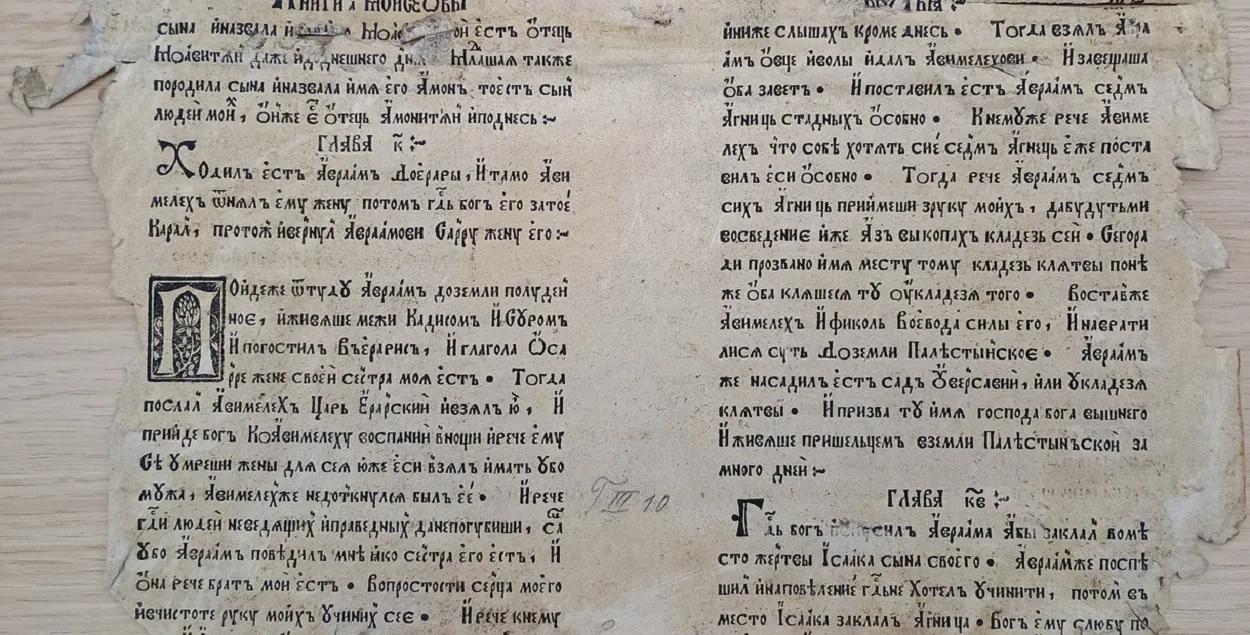 Книги а Моисеовы
сына иназвала и Моа ой естъ ѻтець
Моавитяй даже идоднешнего дня Млашая также
породила сына иназвала имя его Амонъ тоестъ сын
людей моих, ѻнже ест ѻтець Амонитяй иподнесь :~
ГЛАВА к҃ :~
Ходилъ естъ Авраамъ Доерары, Итамо Ави
мелехъ ѿнялъ ему жену потомъ гд҃ь богъ его затое
Каралъ, протож ивернул Авраамови Сарру жену его :~
Пойдеже ѿтуду Авраамъ доземли полуден
ное, иживяше межи Кадисомъ ИСуромъ
Ипогостилъ Въерарисъ, Иглагола Ѻса
рре жене своей сестра моя естъ • Тогда
послал Авимелехъ Царь Ерарский ивзялъ ю, И
прийде богъ КоАвимелеху воспании вноши ирече ему
Сѣ умреши жены для сея юже еси взялъ имать убо
мужа, Авимелехже недоткнулся былъ ее • Ирече
гд҃и людей неведящих иправедных данепогубиши, са
Убо Авраамъ повѣдилъ мнѣ iако сестра его естъ, И
Ѻна рече брат мой естъ • Вопростости серца моего
ивчистоте руку моих учиних сее • Ирече кнему
Бытыя :~
ниже слышахъ кроме днесь • Тогда взялъ Авра
амъ ѻвце иволы идалъ Авимелехови • Изавещаша
ѻба заветъ • Ипоставилъ естъ Авраамъ седмъ
Агницъ стадныхъ ѻсобно • Кнемуже рече Авиме
лехъ что собѣ хотятъ сие седмъ Агнецъ еже поста
вилъ еси ѻсобно • Тогда рече Авраамъ седмъ
сихъ Агницъ приймеши зруку моихъ, дабудутьми
восведение иже Азъ выкопахъ кладезь сей • Сегора
ди прозвано имя месту тому кладезь клятвы понѣ
же ѻба кляшеся ту ѹкладезя того • Воставже
Авимелехъ Ификоль Воевода силы его, Инаврати
лися суть Доземли Палѣстынское • Авраамъ
же насадилъ естъ садъ Ѹверсавии, или укладезя
клятвы • Ипризва ту имя господа бога вышнего
Иживяше пришельцемъ вземли Палѣстынъской за
много дней :~
ГЛАВА кв҃ :~
Гд҃ь богъ Авраама Абы заклал вомѣ
сто жертвы Iсаака сына своего • Авраамже поспѣ
шил инаповѣление гд҃ьне Хотел учинити, потом въ
место Iсаака заклалъ Агница • Богъ ему слюбу по
Г III 10